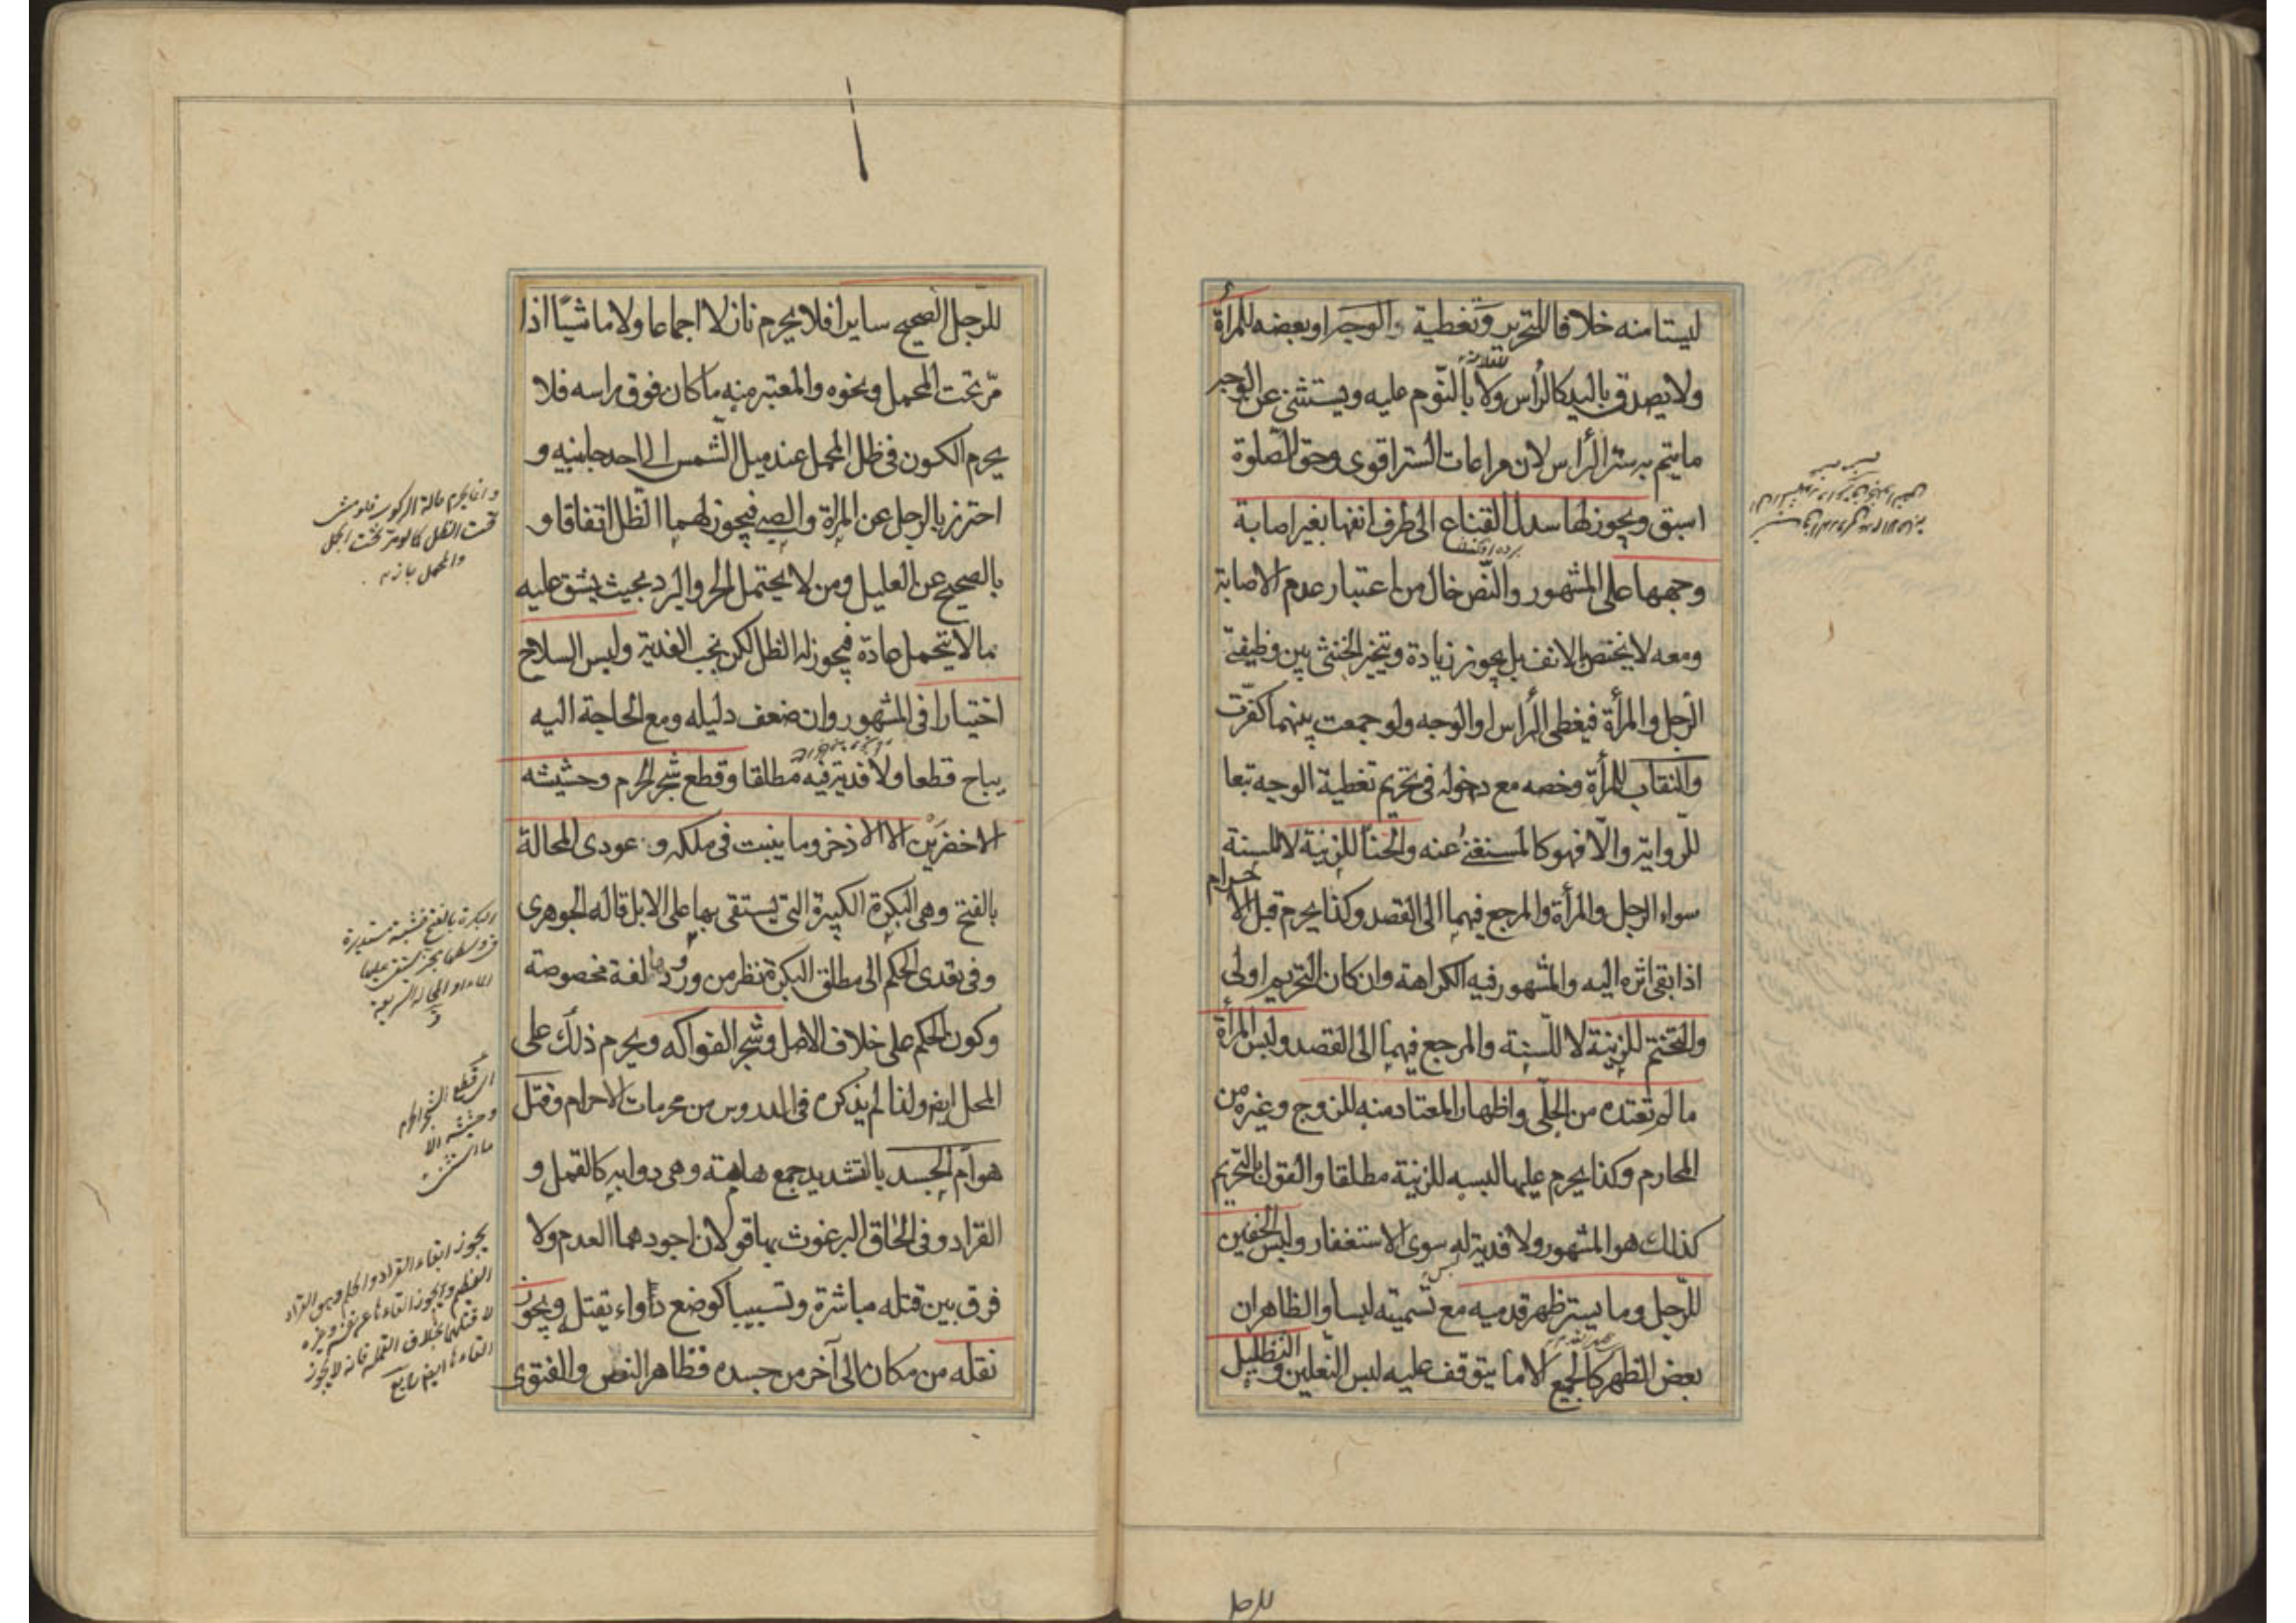 ليستا منه خلافا للتحرير وتغطية الوجه او بعضه للمرأة
ولا يصدق باليد كالرأس ولا بالنوم عليه ويستثنى عن الوجه
ما يتم به ستر الرأس لان مراعات الستر اقوى وحق الصلوة
اسبق ويجوز لها سدل القناع الى طرف انفها بغير اصابة
وجهها على المشهور والنص خال من اعتبار عدم الاصابة
ومعه لا يختص بالانف بل يجوز زيادة ويتخير الخنثى بين وظيفتى
الرجل والمرأة فيغطى الرأس او الوجه ولو جمعت بينهما كفرت
والنقاب للمرأة وخصه مع دخوله فى تحريم تغطية الوجه تبعا
للرواية والا فهو كالمستغنى عنه والحنا للزينة لا للسنة
سواء الرجل والمرأة والمرجع فيهما الى القصد وكذا يحرم قبل الاحرام
اذا بقى اثره اليه والمشهور فيه الكراهة وان كان التحريم اولى
والتختم للزينة لا للسنة والمرجع فيهما الى القصد ولبس المرأة
ما لم تعتده من الحلى واظهار المعتاد منه للزوج وغيره من
المحارم وكذا يحرم عليها لبسه للزينة مطلقا والقول بالتحريم
كذلك هو المشهور ولا فدية له سوى الاستغفار ولبس الخفين
للرجل وما يستر ظهر قدميه مع تسميته لبسا والظاهر ان
بعض الظهر كالجميع الا ما يتوقف عليه لبس النعلين والتظليل
للرجل
للرجل الصحيح سايرا فلا يحرم نازلا اجماعا ولا ماشيا اذا
مر تحت المحمل ونحوه والمعتبر منه ما كان فوق راسه فلا
يحرم الكون فى ظل المحمل عند ميل الشمس الى احد جانبيه و
احترز بالرجل عن المرأة والصبى فيجوز لهما الظل اتفاقا و
بالصحيح عن العليل ومن لا يحتمل الحر والبرد بحيث يشق عليه
ما لا يتحمل عادة فيجوز له الظل لكن يجب الفدية ولبس السلاح
اختيارا فى المشهور وان ضعف دليله ومع الحاجة اليه
يباح قطعا ولا فدية فيه مطلقا وقطع شجر الحرم وحشيشه
الاخضرين الا الاذخر وما ينبت فى ملكه و عودى المحالة
بالفتح وهى البكرة الكبيرة التى يستقى بها على الابل قاله الجوهرى
وفى تعدى الحكم الى مطلق البكرة نظر من ورودها لغة مخصوصة
وكون الحكم على خلاف الاصل وشجر الفواكه ويحرم ذلك على
المحل ايضا ولذا لم يذكره فى الدروس من محرمات الاحرام وقتل
هوام الجسد بالتشديد جمع هامة وهى دوابه كالقمل و
القراد وفى الحاق البرغوث بها قولان اجودهما العدم ولا
فرق بين قتله مباشرة وتسبيبا كوضع دواء يقتله ويجوز
نقله من مكان الى آخر من جسده فظاهر النص والفتوى
وانما يحرم حالة الركوب فلو مشى
تحت الظل كما لو مر تحت الحمل
والمحمل جاز
البكرة بالفتح خشبة مستديرة
فى وسطها محز يستقى عليها
اى قطع الشجر الحرام
وحشيشه الا
ما استثنى
يجوز القاء القراد والحلم وهو القراد
العظيم ويجوز القاءها عن نفسه وغيره
لا قتلهما بخلاف القملة فانه لا يجوز
القاءها ايضا